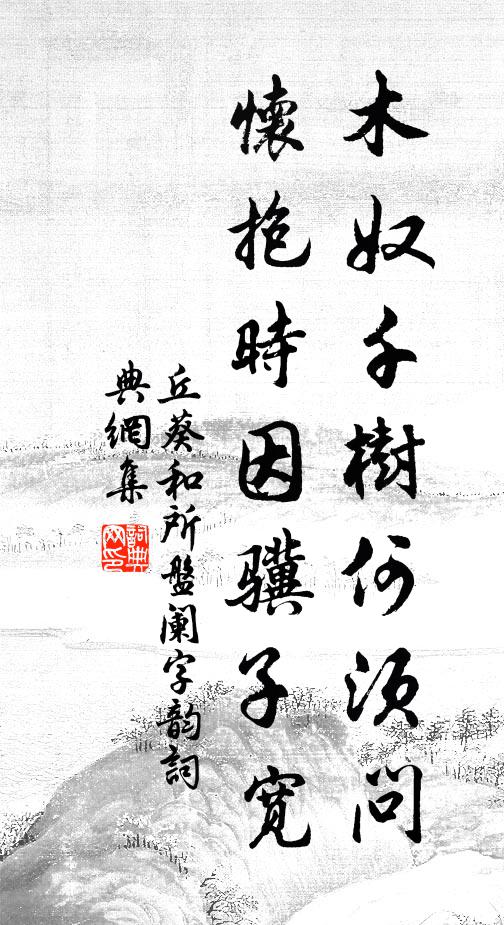 木奴千樹何須問
懷抱時因驥子寬
丘葵和所盤闌字韵詞
典網集
詞典網印